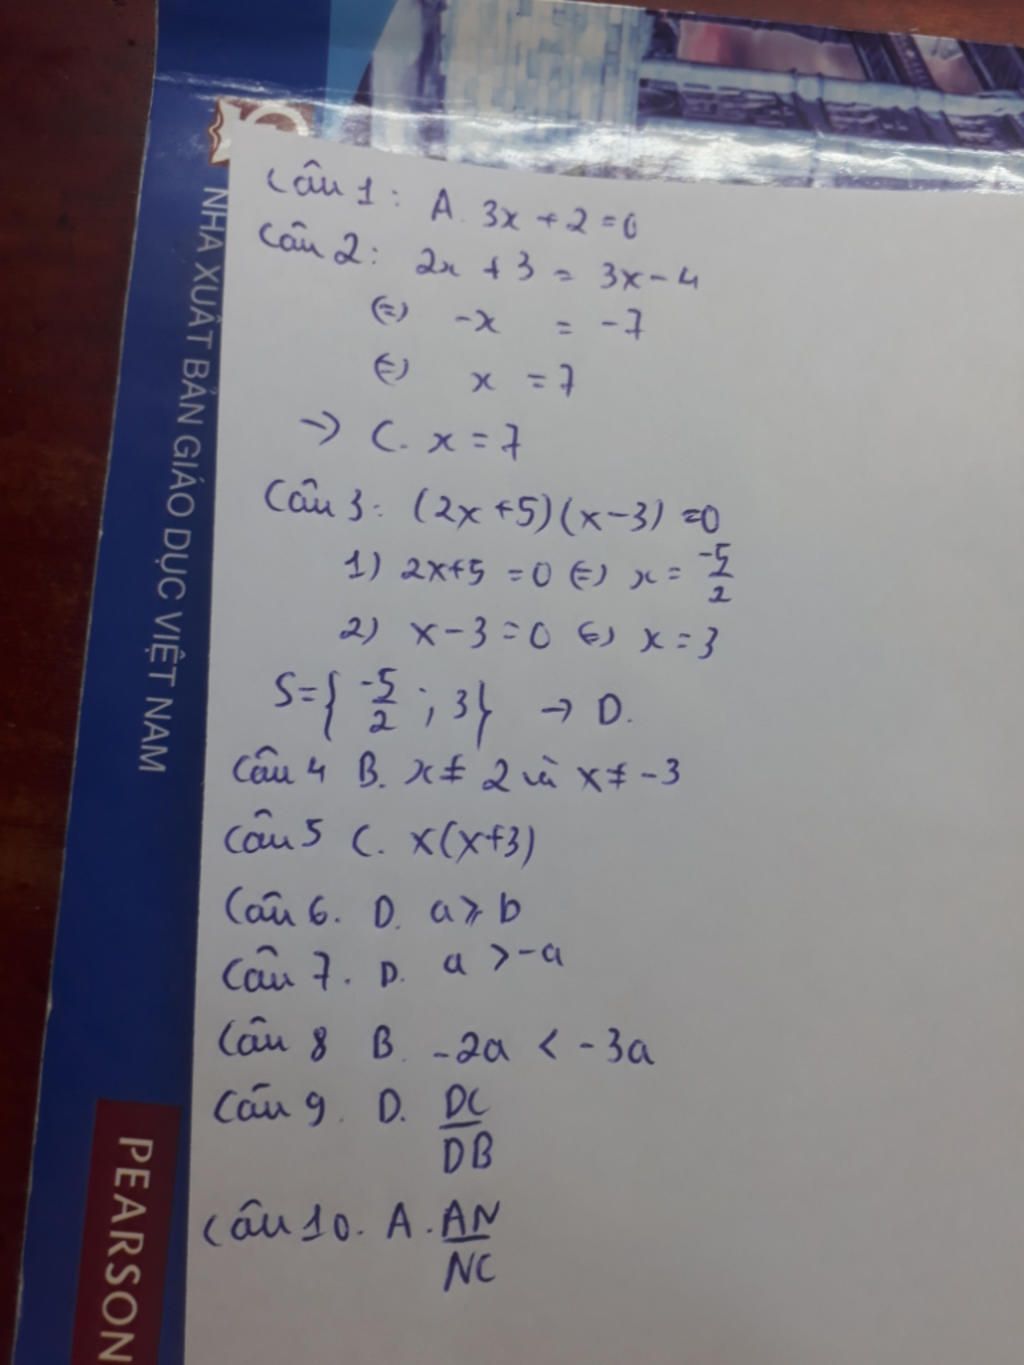 Câu 1: A. 3x + 2 = 0
Câu 2: 2x + 3 = 3x - 4
(=) -x = -7
(=) x = 7
-> C. x = 7
Câu 3: (2x+5)(x-3) =0
1) 2x+5 =0 (=) x = -5/2
2) x-3=0 (=) x = 3
S={ -5/2 ; 3} -> D.
Câu 4 B. x ≠ 2 và x ≠ -3
Câu 5 C. x(x+3)
Câu 6. D. a ⩾ b
Câu 7. D. a > -a
Câu 8 B. -2a < -3a
Câu 9. D. DC/DB
Câu 10. A. AN/NC
NHÀ XUẤT BẢN GIÁO DỤC VIỆT NAM
PEARSON